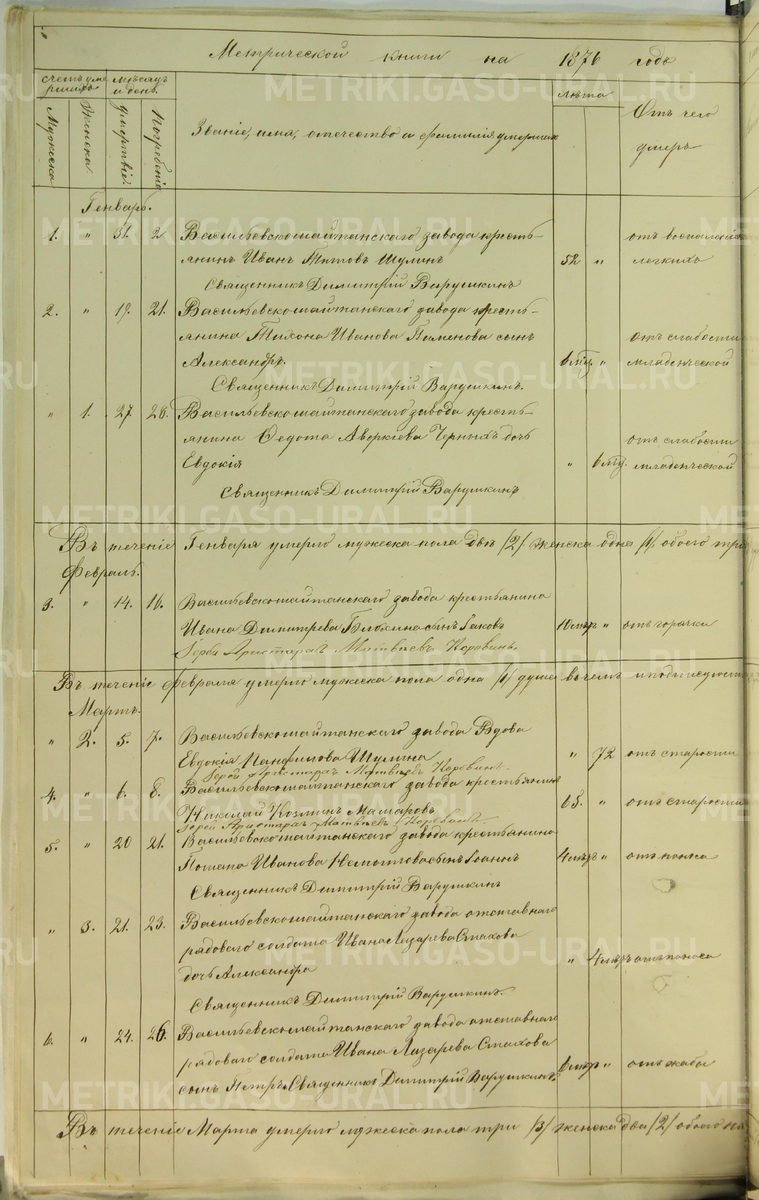 Метрической книги на 1876 годъ
METRIKI.GASO-URAL.RU
счетъ умершихъ
мѣсяцъ и день
лѣта
Мужеска
Женска
смерти
погребенія
Званіе, имя, отечество и фамилія умершихъ
Отъ чего умеръ
Генварь.
1. " 31. 2 Васильевскошайтанскаго завода кресть-
янинъ Иванъ Шулинъ 52 " отъ воспаленія легкихъ
Священникъ Димитрій Варушкинъ
2. " 19. 21. Васильевскошайтанскаго завода кресть-
янина Тихона Иванова Пименова сынъ
Александръ. 6 мѣс. " отъ слабости младенческой
Священникъ Димитрій Варушкинъ.
" 1. 27 28. Васильевскошайтанскаго завода кресть-
янина Федота Аверкіева Черныхъ дочь
Евдокія " 6 мѣс. отъ слабости младенческой
Священникъ Димитрій Варушкинъ
Въ теченіе Генваря умерло мужеска пола два /2/ женска одна /1/, обоего три
Февраль.
3. " 14. 16. Васильевскошайтанскаго завода крестьянина
Ивана Димитрева сынъ Іаковъ " отъ горячки
Іерей Аристархъ Матвѣевъ Коровинъ.
Въ теченіе февраля умерло мужеска пола одна /1/ душа въ чемъ и подписуюсь
Мартъ.
" 2. 5. 7. Васильевскошайтанскаго завода Вдова
Евдокія Панфилова Шулина " 72 отъ старости
Іерей Аристархъ Матвѣевъ Коровинъ.
4. " 6. 8. Васильевскошайтанскаго завода крестьянинъ
Николай Козминъ Макаровъ 65. " отъ старости
Іерей Аристархъ Матвѣевъ Коровинъ
5. " 20 21. Васильевскошайтанскаго завода крестьянина
Потапа Иванова сынъ Іоаннъ 4 " отъ поноса
Священникъ Димитрій Варушкинъ
" 3. 21. 23. Васильевскошайтанскаго завода отставнаго
рядоваго солдата Ивана Лазарева Стахова
дочь Александра " 4 отъ поноса
Священникъ Димитрій Варушкинъ.
6. " 24. 26. Васильевскошайтанскаго завода отставнаго
рядоваго солдата Ивана Лазарева Стахова
сынъ Петръ Священникъ Димитрій Варушкинъ. 6 " отъ жабы
Въ теченіе Марта умерло мужеска пола три /3/ женска два /2/ обоего